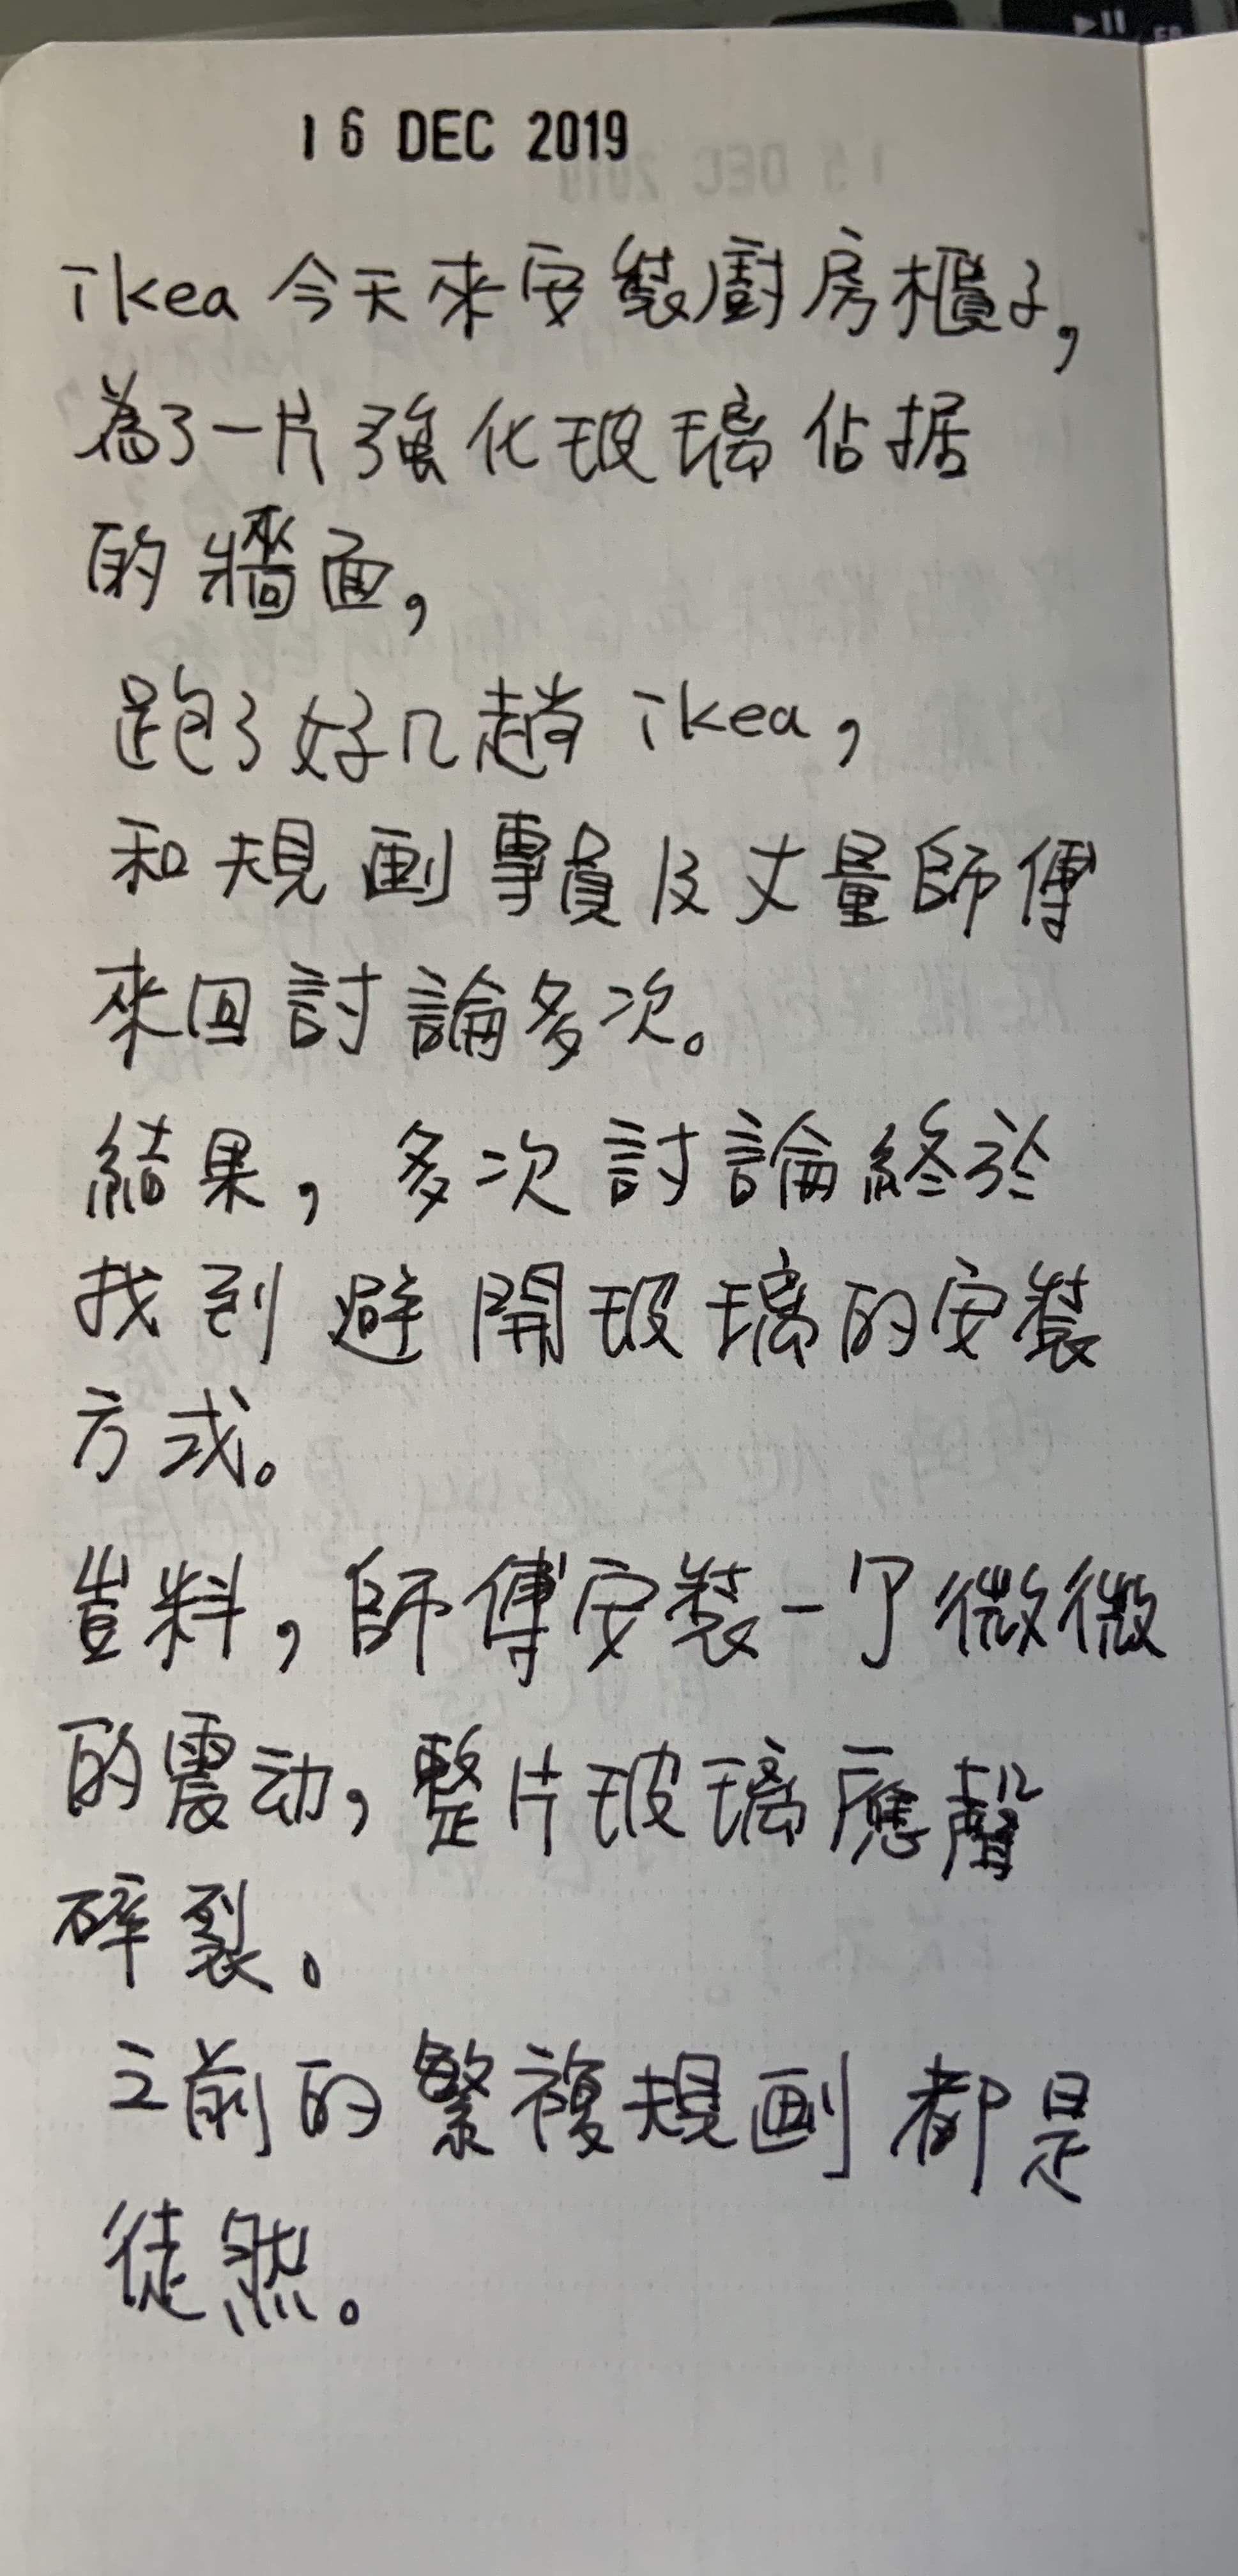 16 DEC 2019
ikea 今天來安裝廚房櫃子,
為了一片強化玻璃佔据
的牆面,
跑了好几趟 ikea,
和規劃專員及丈量師傅
來回討論多次。
結果,多次討論終於
找到避開玻璃的安裝
方式。
豈料,師傅安裝一个微微
的震动,整片玻璃應聲
碎裂。
之前的繁複規劃都是
徒然。